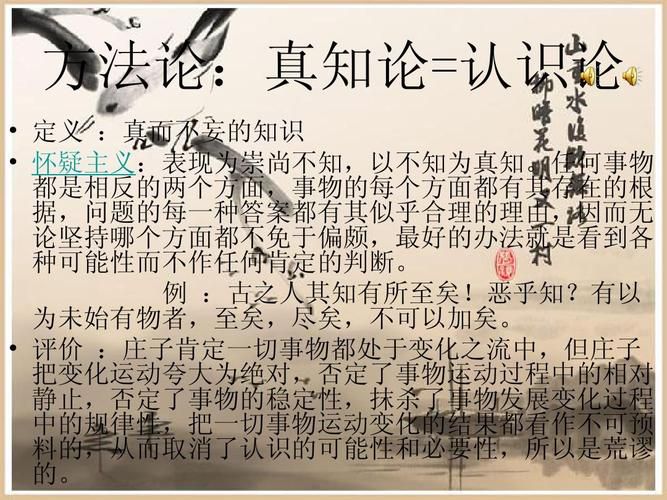 方法论：真知论=认识论
• 定义 ：真而不妄的知识
• 怀疑主义：表现为崇尚不知，以不知为真知。任何事物
都是相反的两个方面，事物的每个方面都有其存在的根
据，问题的每一种答案都有其似乎合理的理由，因而无
论坚持哪个方面都不免于偏颇，最好的办法就是看到各
种可能性而不作任何肯定的判断。
例 ：古之人其知有所至矣！恶乎知？有以
为未始有物者，至矣，尽矣，不可以加矣。
• 评价 ：庄子肯定一切事物都处于变化之流中，但庄子
把变化运动夸大为绝对，否定了事物运动过程中的相对
静止，否定了事物的稳定性，抹杀了事物发展变化过程
中的规律性，把一切事物运动变化的结果都看作不可预
料的，从而取消了认识的可能性和必要性，所以是荒谬
的。
山重水复疑无路
柳暗花明又一村